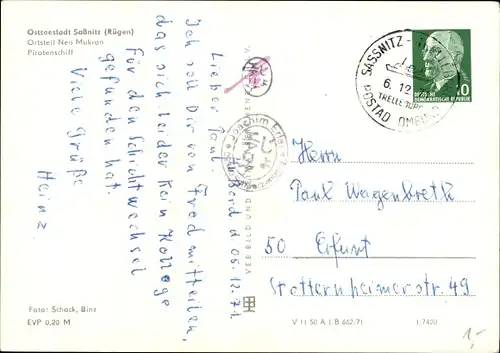 Ostseestadt Saßnitz (Rügen)
Ortsteil Neu Mukran
Piratenschiff
An Bord d 05.12.71
Lieber Paul
Ich soll Dir von Fred mitteilen,
das sich leider kein Kollege
für den Schichtwechsel
gefunden hat.
Viele Grüße
Heinz.
Foto: Schack, Binz
EVP 0,20 M
VEB BILD UND
SASSNITZ -
6. 12
TRELLEBORG
POSTAD OMBORD
10
DEUTSCHE
DEMOKRATISCHE REPUBLIK
Joachim
Herrn
Paul Wagenbreth
50 Erfurt
Stotternheimerstr. 49
V 11 50 A 1/B 662/71 1/7420
1,-